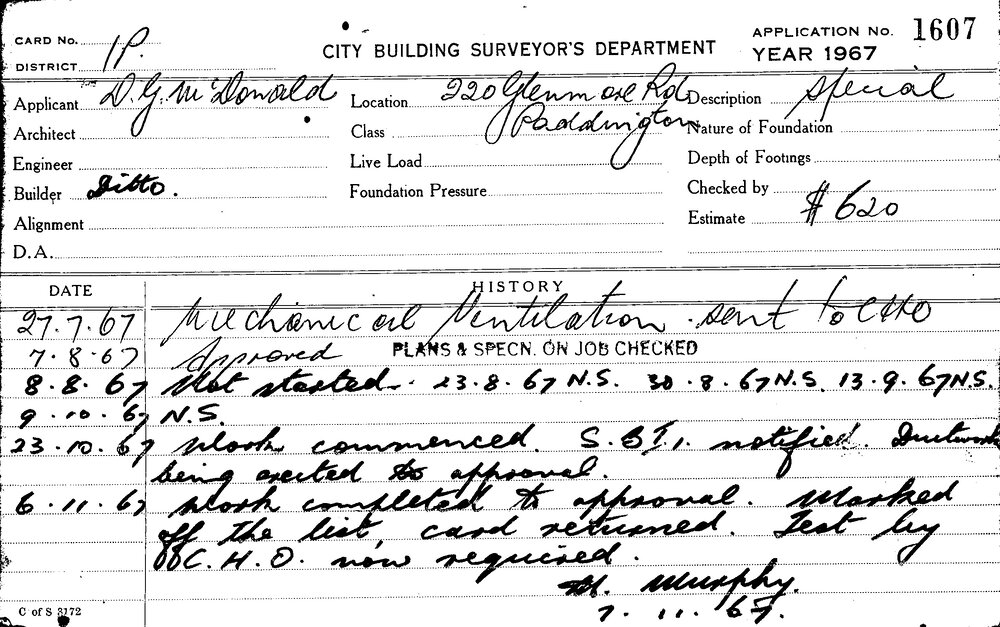 CARD No. 1P.
CITY BUILDING SURVEYOR'S DEPARTMENT
APPLICATION No. 1607
DISTRICT
YEAR 1967
Applicant D.G. McDonald Location 220 Glenmore Rd Description Special
Architect Class Paddington Nature of Foundation
Engineer Live Load Depth of Footings
Builder Ditto. Foundation Pressure Checked by
Alignment Estimate $620
D.A.
DATE HISTORY
27.7.67 Mechanical Ventilation . sent to CHO
7.8.67 Approved PLANS & SPECN. ON JOB CHECKED
8.8.67 Not started. 23.8.67 N.S. 30.8.67 N.S. 13.9.67 N.S.
9.10.67 N.S.
23.10.67 Work commenced. notified. Ductwork
being erected to approval.
6.11.67 Work completed to approval. Marked
off the list, card returned. Test by
C.H.O. now required.
Murphy.
7.11.67.
C of S 3172